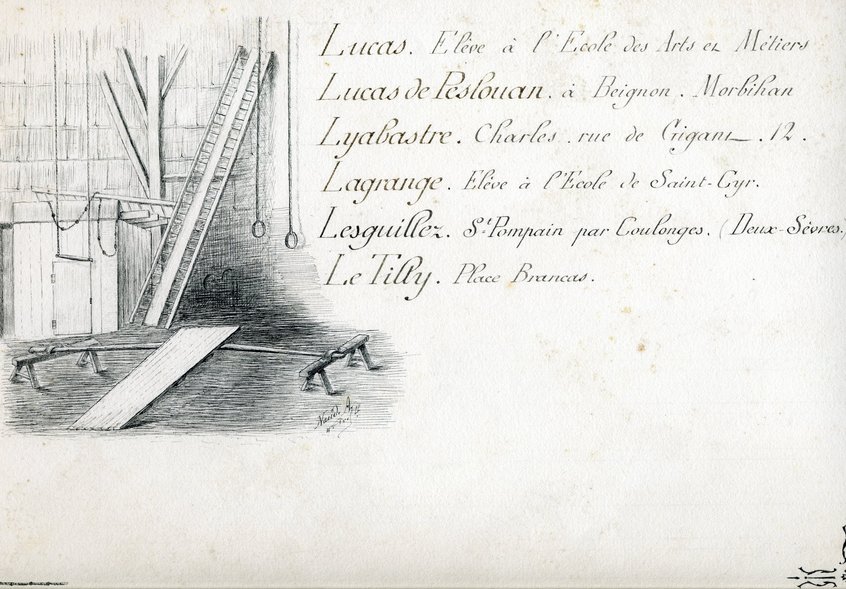 Lucas. Elève à l'Ecole des Arts et Métiers
Lucas de Peslouan. à Beignon. Morbihan
Lyabastre. Charles. rue de Gigant. 12.
Lagrange. Elève à l'Ecole de Saint-Cyr.
Lesguillez. St Pompain par Coulonges. (Deux-Sèvres.)
Le Tilly. Place Brancas.